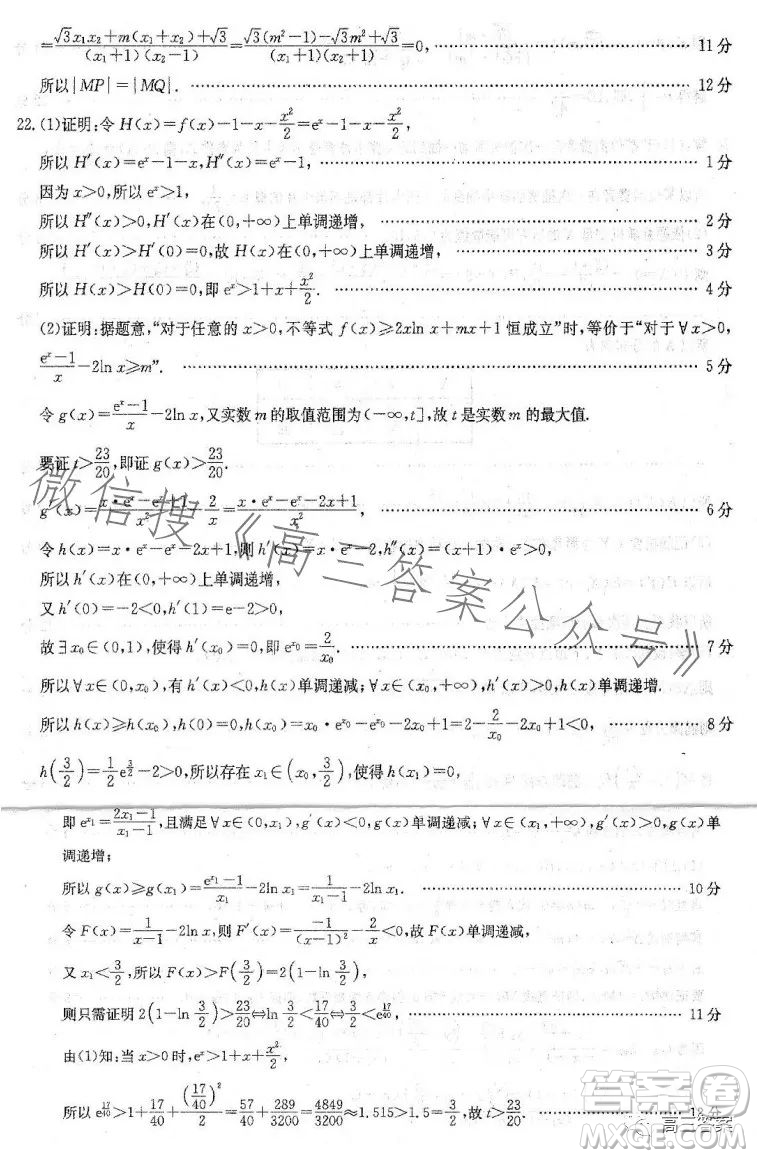 =√3x₁x₂+m(x₁+x₂)+√3/(x₁+1)(x₂-1)=√3(m²-1)-√3m²+√3/(x₁+1)(x₂+1)=0, 11分
所以|MP|=|MQ|. 12分
22.(1)证明:令H(x)=f(x)-1-x-x²/2=eˣ-1-x-x²/2,
所以H′(x)=eˣ-1-x,H″(x)=eˣ-1, 1分
因为x>0,所以eˣ>1,
所以H″(x)>0,H′(x)在(0,+∞)上单调递增, 2分
所以H′(x)>H′(0)=0,故H(x)在(0,+∞)上单调递增, 3分
所以H(x)>H(0)=0,即eˣ>1+x+x²/2. 4分
(2)证明:据题意,“对于任意的x>0,不等式f(x)≥2xln x+mx+1恒成立”时,等价于“对于∀x>0,
eˣ-1/x-2ln x≥m”. 5分
令g(x)=eˣ-1/x-2ln x,又实数m的取值范围为(-∞,t],故t是实数m的最大值.
要证t>23/20,即证g(x)>23/20.
g′(x)=x·eˣ-eˣ+1/x²-2/x=x·eˣ-eˣ-2x+1/x², 6分
令h(x)=x·eˣ-eˣ-2x+1,则h′(x)=x·eˣ-2,h″(x)=(x+1)·eˣ>0,
所以h′(x)在(0,+∞)上单调递增,
又h′(0)=-2<0,h′(1)=e-2>0,
故∃x₀∈(0,1),使得h′(x₀)=0,即e^x₀=2/x₀. 7分
所以∀x∈(0,x₀),有h′(x)<0,h(x)单调递减;∀x∈(x₀,+∞),h′(x)>0,h(x)单调递增.
所以h(x)≥h(x₀),h(0)=0,h(x₀)=x₀·e^x₀-e^x₀-2x₀+1=2-2/x₀-2x₀+1<0, 8分
h(3/2)=1/2e^(3/2)-2>0,所以存在x₁∈(x₀,3/2),使得h(x₁)=0,
即e^x₁=2x₁-1/x₁-1,且满足∀x∈(0,x₁),g′(x)<0,g(x)单调递减;∀x∈(x₁,+∞),g′(x)>0,g(x)单
调递增;
所以g(x)≥g(x₁)=e^x₁-1/x₁-2ln x₁=1/x₁-1-2ln x₁. 10分
令F(x)=1/x-1-2ln x,则F′(x)=-1/(x-1)²-2/x<0,故F(x)单调递减,
又x₁<3/2,所以F(x)>F(3/2)=2(1-ln 3/2),
则只需证明2(1-ln 3/2)>23/20⇔ln 3/2<17/40⇔3/2<e^(17/40), 11分
由(1)知:当x>0时,eˣ>1+x+x²/2,
所以e^(17/40)>1+17/40+(17/40)²/2=57/40+289/3200=4849/3200≈1.515>1.5=3/2,故t>23/20. 12分
微信搜《高三答案公众号》
答案卷
高三答案
MXQE.COM